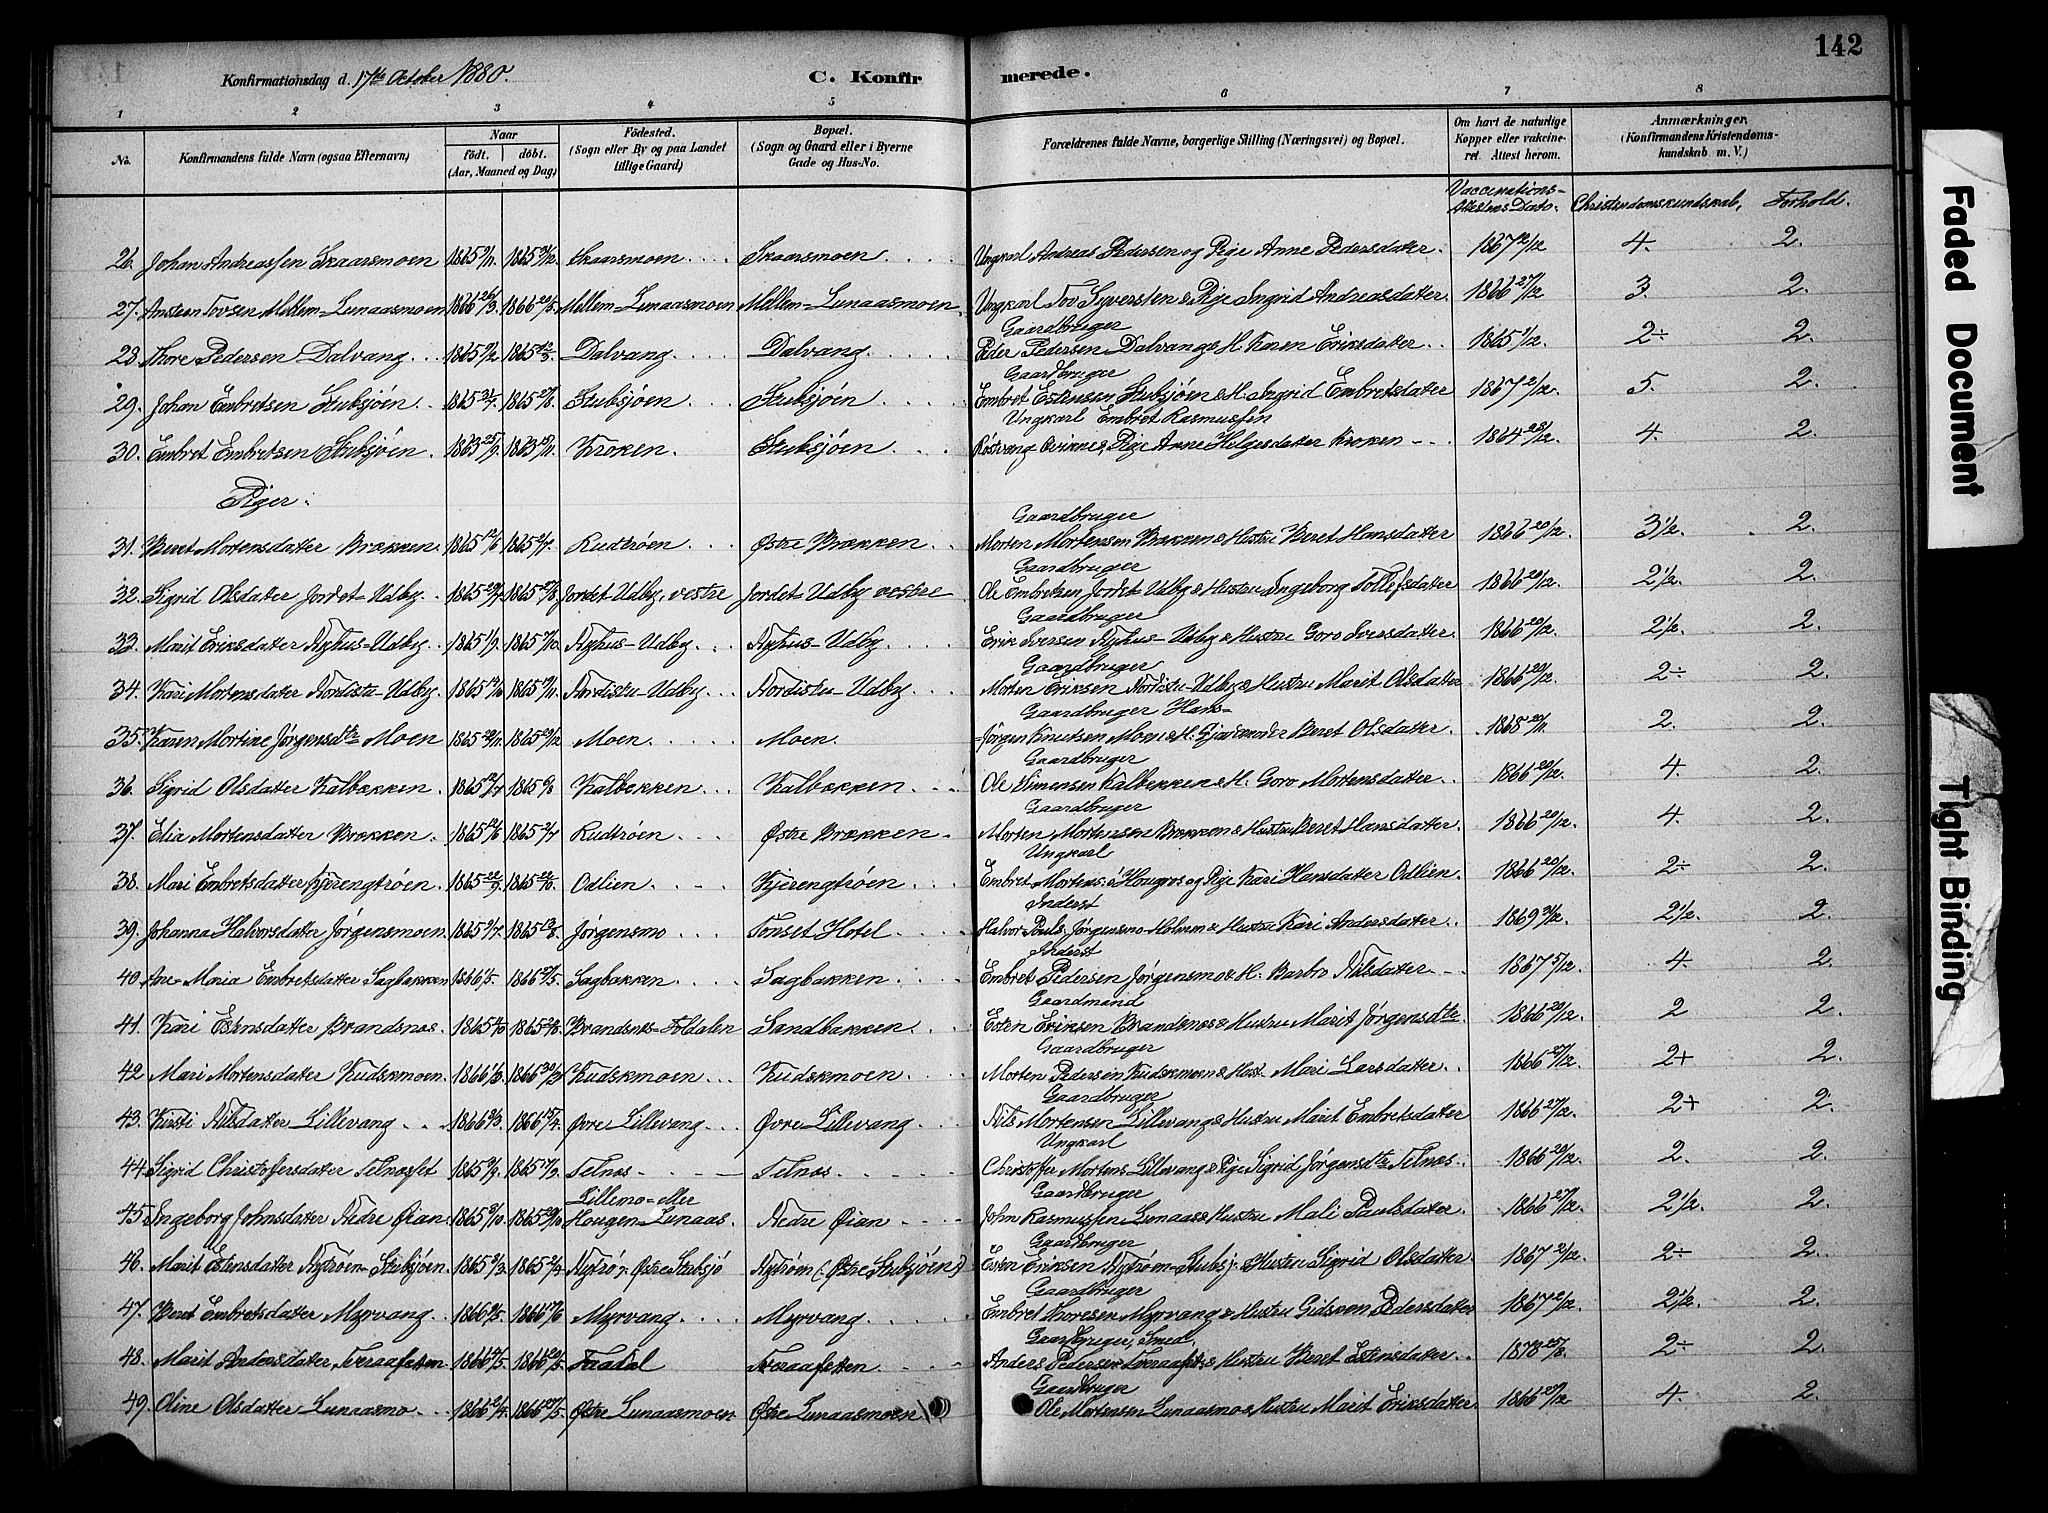 142
Konfirmationsdag d. 17de October 1880.
C. Konfirmerede.
1 2 3 4 5 6 7 8
No. Konfirmandens fulde Navn (ogsaa Efternavn) Naar født. døbt. (Aar, Maaned og Dag) Fødested. (Sogn eller By og paa Landet tillige Gaard) Bopæl. (Sogn og Gaard eller i Byerne Gade og Hus-No. Forældrenes fulde Navne, borgerlige Stilling (Næringsvei) og Bopæl. Om havt de naturlige Kopper eller vaccineret. Attest herom. Anmærkninger. (Konfirmandens Kristendomskundskab m. V.)
Vaccinations-Attestens Dato. Christendomskundskab, Forhold.
26. Johan Andreassen Skaarsmoen 1865 1865 Skaarsmoen Skaarsmoen Ungkarl Andreas Pedersen og Pige Anne Pedersdatter. 1867 4. 2.
27. Amsteen Tovsen Mellem-Lunaasmoen 1866 26/3 1866 20/5 Mellem-Lunaasmoen Mellem-Lunaasmoen Ungkarl Tov Syversten & Pige Ingrid Andreasdatter. 1866 27/12 3. 2.
28. Thore Pedersen Dalvang 1865 1865 Dalvang Dalvang Gaardbruger Peder Pedersen Dalvang & H. Karen Eriksdatter 1865 1/12 2÷ 2.
29. Johan Embretsen Stubsjöen 1865 1865 Stubsjöen Stubsjöen Gaardbruger Embret Estensen Stubsjöen & H. Ingrid Embretsdatter 1867 2/12 5. 2.
30. Embret Embretsen Stubsjöen 1863 25/9 1863 Kroken. Stubsjöen Ungkarl Embret Rasmussen Röstvang Qvikne, & Pige Anne Helgesdatter Kroken 1864 28/12 4. 2.
Piger:
31. Beret Mortensdatter Brækken 1865 12/6 1865 Rudtröen Østre Brækken Gaardbruger Morten Mortensen Brækken & Hustru Beret Hansdatter 1866 20/12 3½. 2.
32. Sigrid Olsdatter Jordet-Udby. 1865 1865 Jordet Udby, vestre Jordet-Udby vestre Gaardbruger Ole Embretsen Jordet Udby & Hustru Ingeborg Tollefsdatter 1866 20/12 2½. 2.
33. Marit Eriksdatter Nyhus-Udby. 1865 1/9 1865 Nyhus-Udby Nyhus-Udby Gaardbruger Erik Iversen Nyhus-Udby & Hustru Goro Iversdatter. 1866 20/12. 2½. 2.
34. Kari Mortensdatter Nordistu-Udby. 1865 1865 Nordistu-Udby Nordistu-Udby Gaardbruger Morten Eriksen Nordistu-Udby & Hustru Marit Olsdatter 1866 20/12. 2÷ 2.
35. Karen Mortine Jørgensdtr Moen 1865 1865 Moen Moen. Gaardbruger Hans-Jörgen Knutsen Moen & H. Beret Olsdatter 1868 20/11. 2. 2.
36. Sigrid Olsdatter Kalbækken. 1865 1865 Kalbækken Kalbækken Gaardbruger Ole Simensen Kalbekken & H. Goro Mortensdatter 1866 20/12. 4. 2.
37. Elie Mortensdatter Brækken. 1865 12/6 1865 2/7 Rudtröen Østre Brækken Gaardbruger Morten Mortensen Brækken & Hustru Beret Hansdatter. 1866 20/12. 4. 2.
38. Mari Embretsdatter Kjerengtröen. 1865 22/9 1865 Odlien Kjerengtröen Ungkarl Embret Mortens. Hougros og Pige Kari Hansdatter Odlien. 1866 20/12. 2÷ 2.
39. Johanna Halvorsdatter Jörgensmoen. 1865 1865 13/8 Jörgensmo Tönset Hotel Inderst Halvor Pouls. Jörgensmo-Holmen & Hustru Kari Andersdatter 1869 2½. 2.
40. Ane Maria Embretsdatter Sagbakken 1866 1/5 1866 27/5 Sagbakken Sagbakken Inderst Embret Pedersen Jörgensmo & H. Barbro Nilsdatter 1867 5/12 4. 2.
41. Kari Estensdatter Brandsnæs 1865 1865 Brandsnæs-Foldalen Sandbakken Gaardmand Esten Eriksen Brandsnæs & Hustru Marit Jörgensdtr 1866 20/12. 2 2.
42. Mari Mortensdatter Kudskmoen. 1866 1866 Kudskmoen Kudskmoen Gaardbruger Morten Pedersen Kudskmoen & Hust. Mari Larsdatter 1866 27/12. 2+ 2.
43. Kirsti Nilsdatter Lillevang 1866 1866 15/4 Øvre Lillevang Øvre Lillevang Gaardbruger Nils Mortensen Lillevang & Hustru Marit Embretsdatter 1866 27/12. 2+ 2.
44. Sigrid Christoffersdatter Telnæsset 1865 1865 17/9 Telnæs Telnæs Ungkarl Christoffer Mortens. Lillevang & Pige Sigrid Jörgensdtr Telnæs. 1866 20/12. 2. 2.
45. Ingeborg Johnsdatter Nedre Øian 1865 1865 Lillemo eller Hougen-Lunaas. Nedre Øian Gaardbruger John Rasmussen Lunaas & Hustru Mali Paulsdatter 1866 27/12. 2½. 2.
46. Marit Estensdatter Nytröen-Stubsjöen 1865 1865 Nytrö, Østre Stubsjö Nytröen (: Østre Stubsjöen:) Gaardbruger Esten Eriksen Nytröen-Stubsj. & Hustru Sigrid Olsdatter. 1867 2/12. 2÷ 2.
47. Beret Embretsdatter Myrvang 1866 1866 17/6 Myrvang Myrvang Gaardbruger Embret Thoresen Myrvang & Hustru Gidsken Pedersdatter 1867 2/12. 2½. 2.
48. Marit Andersdatter Tveraasetten 1866 1866 Faadal Tveraasetten Gaardbruger, Smed, Anders Pedersen Tveraaset & Hustru Beret Estensdatter 1878 25/8. 2÷ 2.
49. Oline Olsdatter Lunaasmo 1866 1866 27/5 Østre Lunaasmoen Østre Lunaasmoen Gaardbruger Ole Mortensen Lunaasmo & Hustru Marit Eriksdatter. 1866 27/12 4. 2.
Faded Document
Tight Binding